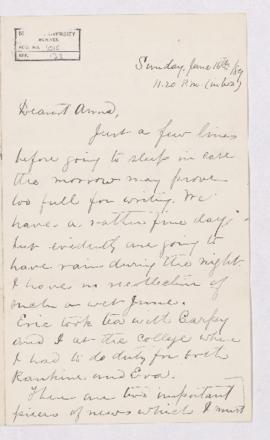 UNIVERSITY
ACC. NO. 1016
REF.
Sunday, June 16th/89
11.20 P.M. (in bed)
Dearest Anna,
Just a few lines
before going to sleep in case
the morrow may prove
too full for writing. We
have a rather fine day
but evidently are going to
have rain during the night
I have no recollection of
such a wet June.
Eric took tea with Carpy
and I at the College where
I had to do duty for both
Rankine and Eva.
There are two important
pieces of news which I must